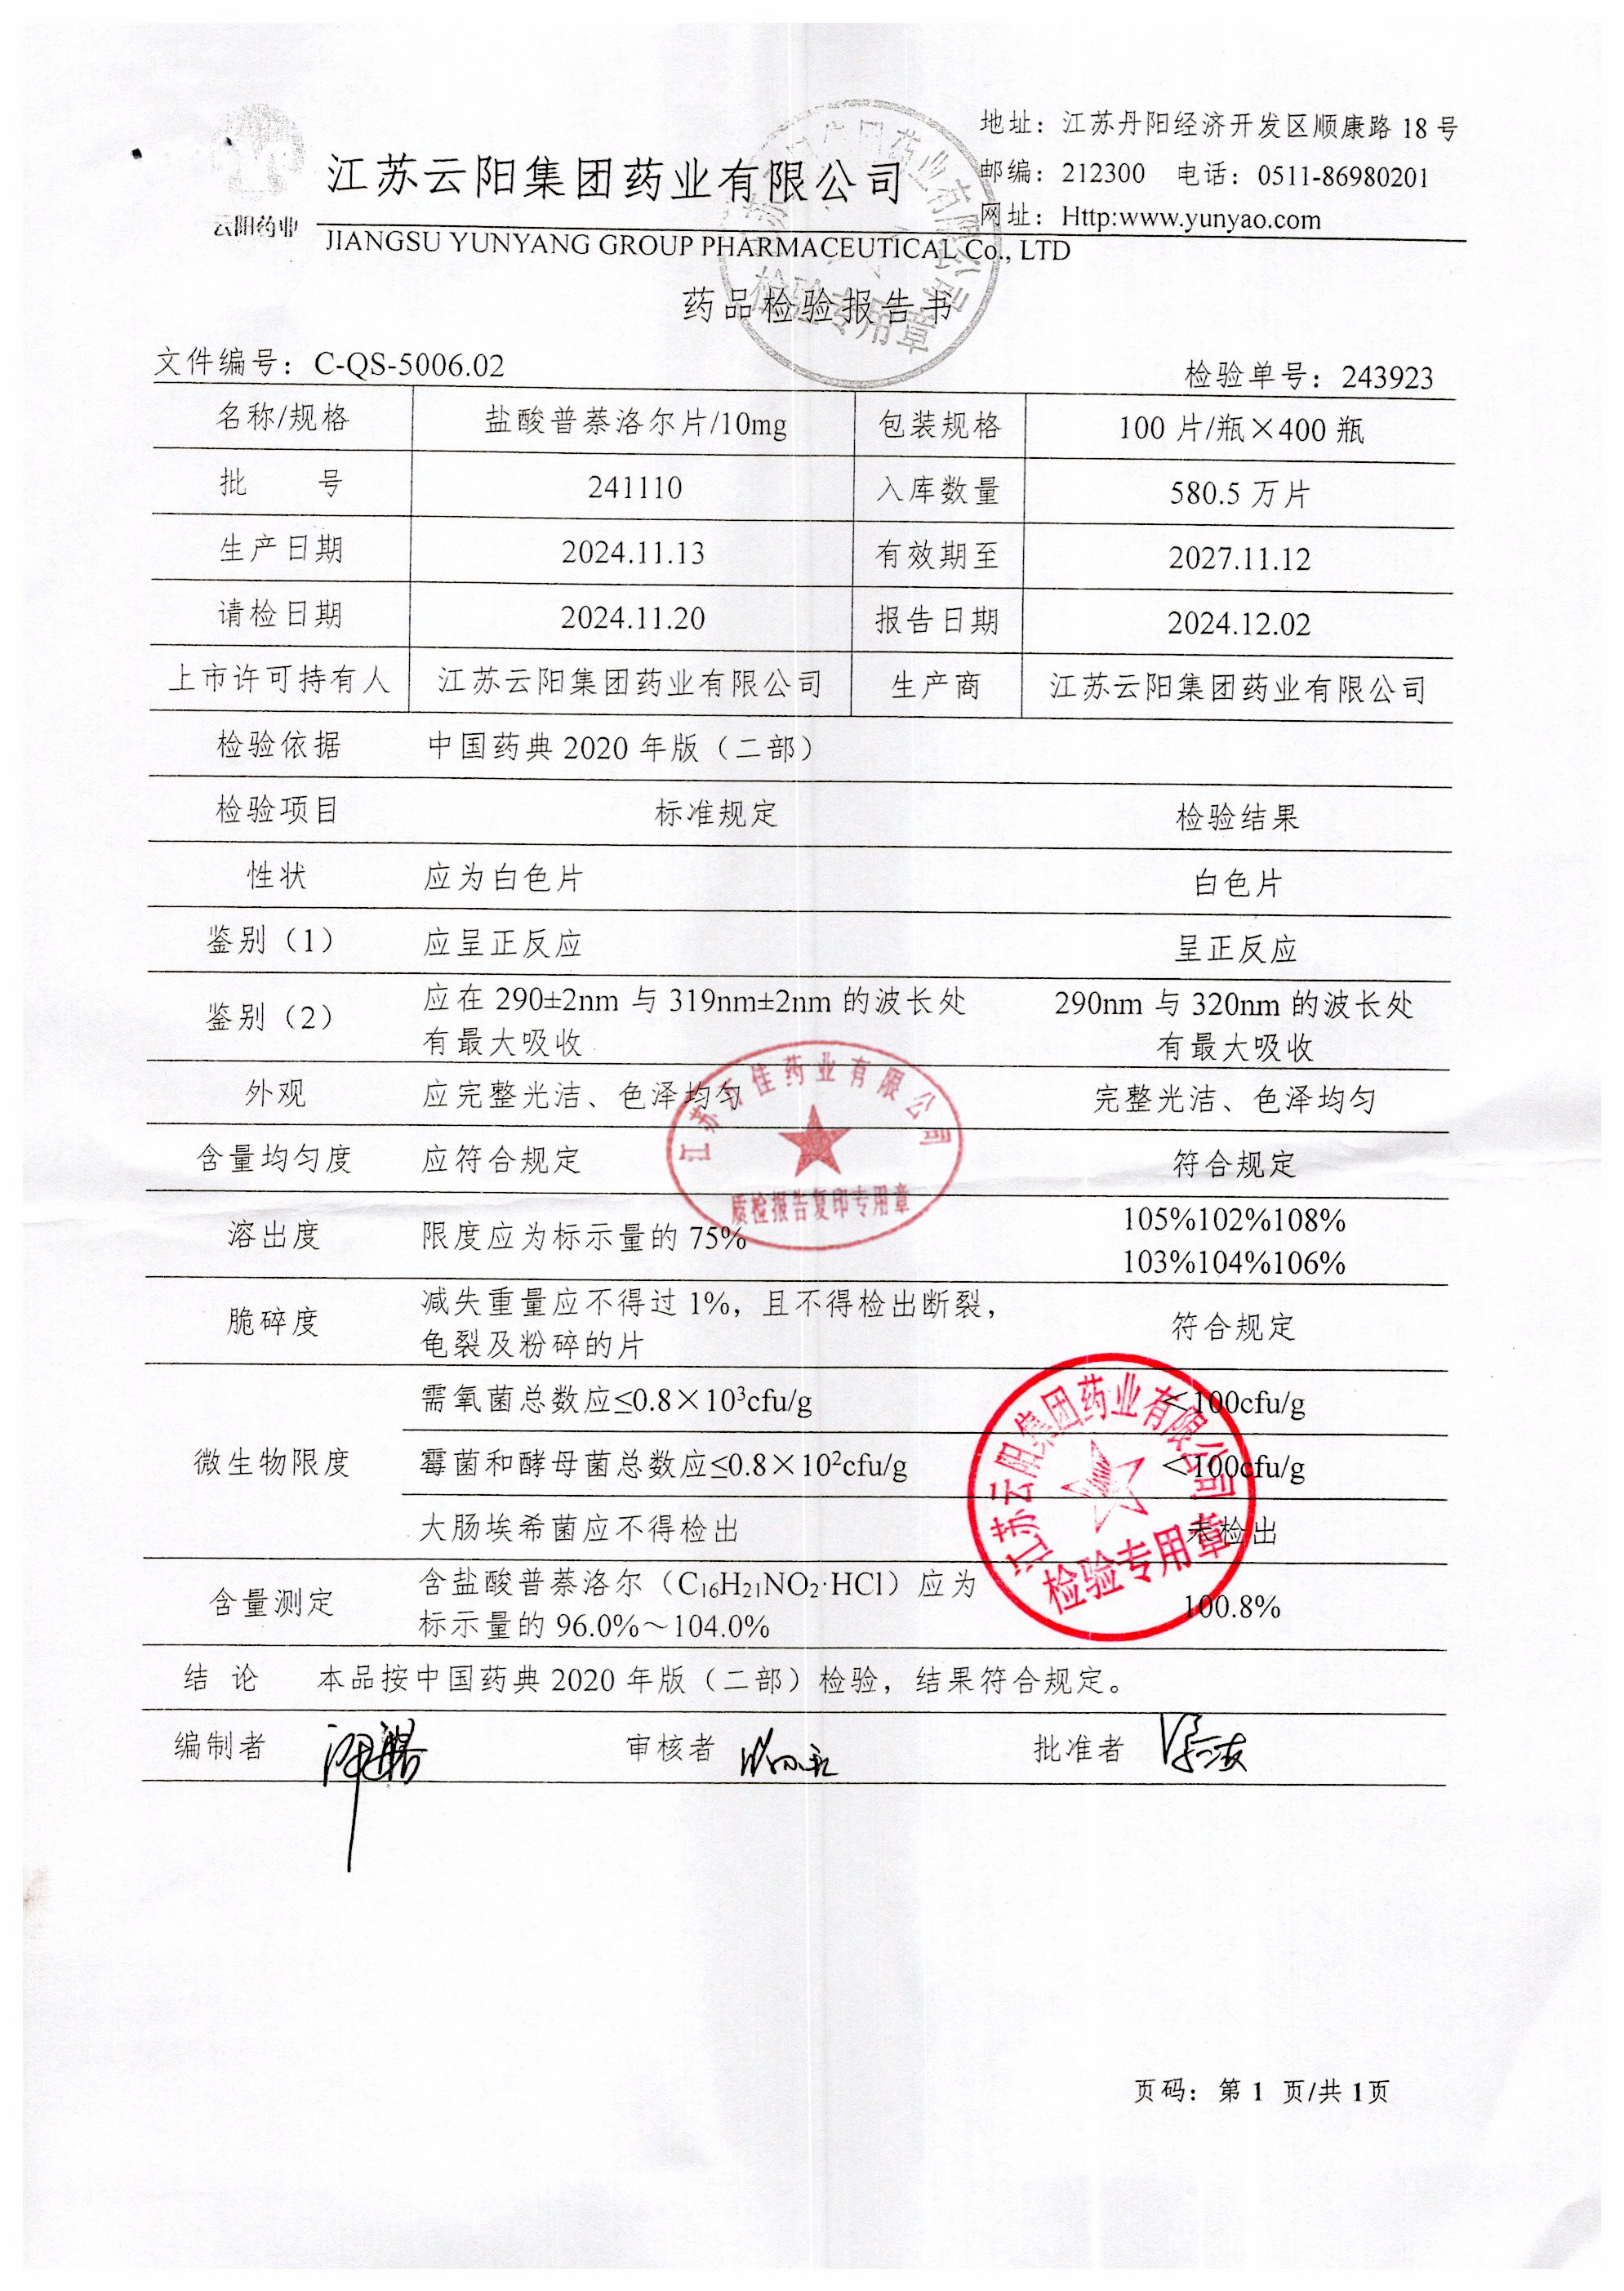 地址：江苏丹阳经济开发区顺康路 18 号
江苏云阳集团药业有限公司
邮编：212300 电话：0511-86980201
云阳药业
网址：Http:www.yunyao.com
JIANGSU YUNYANG GROUP PHARMACEUTICAL Co., LTD
药品检验报告书
检验专用章
文件编号：C-QS-5006.02 检验单号：243923
名称/规格 盐酸普萘洛尔片/10mg 包装规格 100 片/瓶×400 瓶
批 号 241110 入库数量 580.5 万片
生产日期 2024.11.13 有效期至 2027.11.12
请检日期 2024.11.20 报告日期 2024.12.02
上市许可持有人 江苏云阳集团药业有限公司 生产商 江苏云阳集团药业有限公司
检验依据 中国药典 2020 年版（二部）
检验项目 标准规定 检验结果
性状 应为白色片 白色片
鉴别（1） 应呈正反应 呈正反应
鉴别（2） 应在 290±2nm 与 319nm±2nm 的波长处 290nm 与 320nm 的波长处
有最大吸收 有最大吸收
外观 应完整光洁、色泽均匀 完整光洁、色泽均匀
含量均匀度 应符合规定 符合规定
质检报告复印专用章
溶出度 限度应为标示量的 75% 105%102%108%
103%104%106%
脆碎度 减失重量应不得过 1%，且不得检出断裂， 符合规定
龟裂及粉碎的片
微生物限度 需氧菌总数应≤0.8×10³cfu/g ＜100cfu/g
霉菌和酵母菌总数应≤0.8×10²cfu/g ＜100cfu/g
大肠埃希菌应不得检出 未检出
江苏云阳集团药业有限公司
检验专用章
含量测定 含盐酸普萘洛尔（C₁₆H₂₁NO₂·HCl）应为 100.8%
标示量的 96.0%～104.0%
结 论 本品按中国药典 2020 年版（二部）检验，结果符合规定。
编制者 审核者 批准者
页码：第 1 页/共 1页